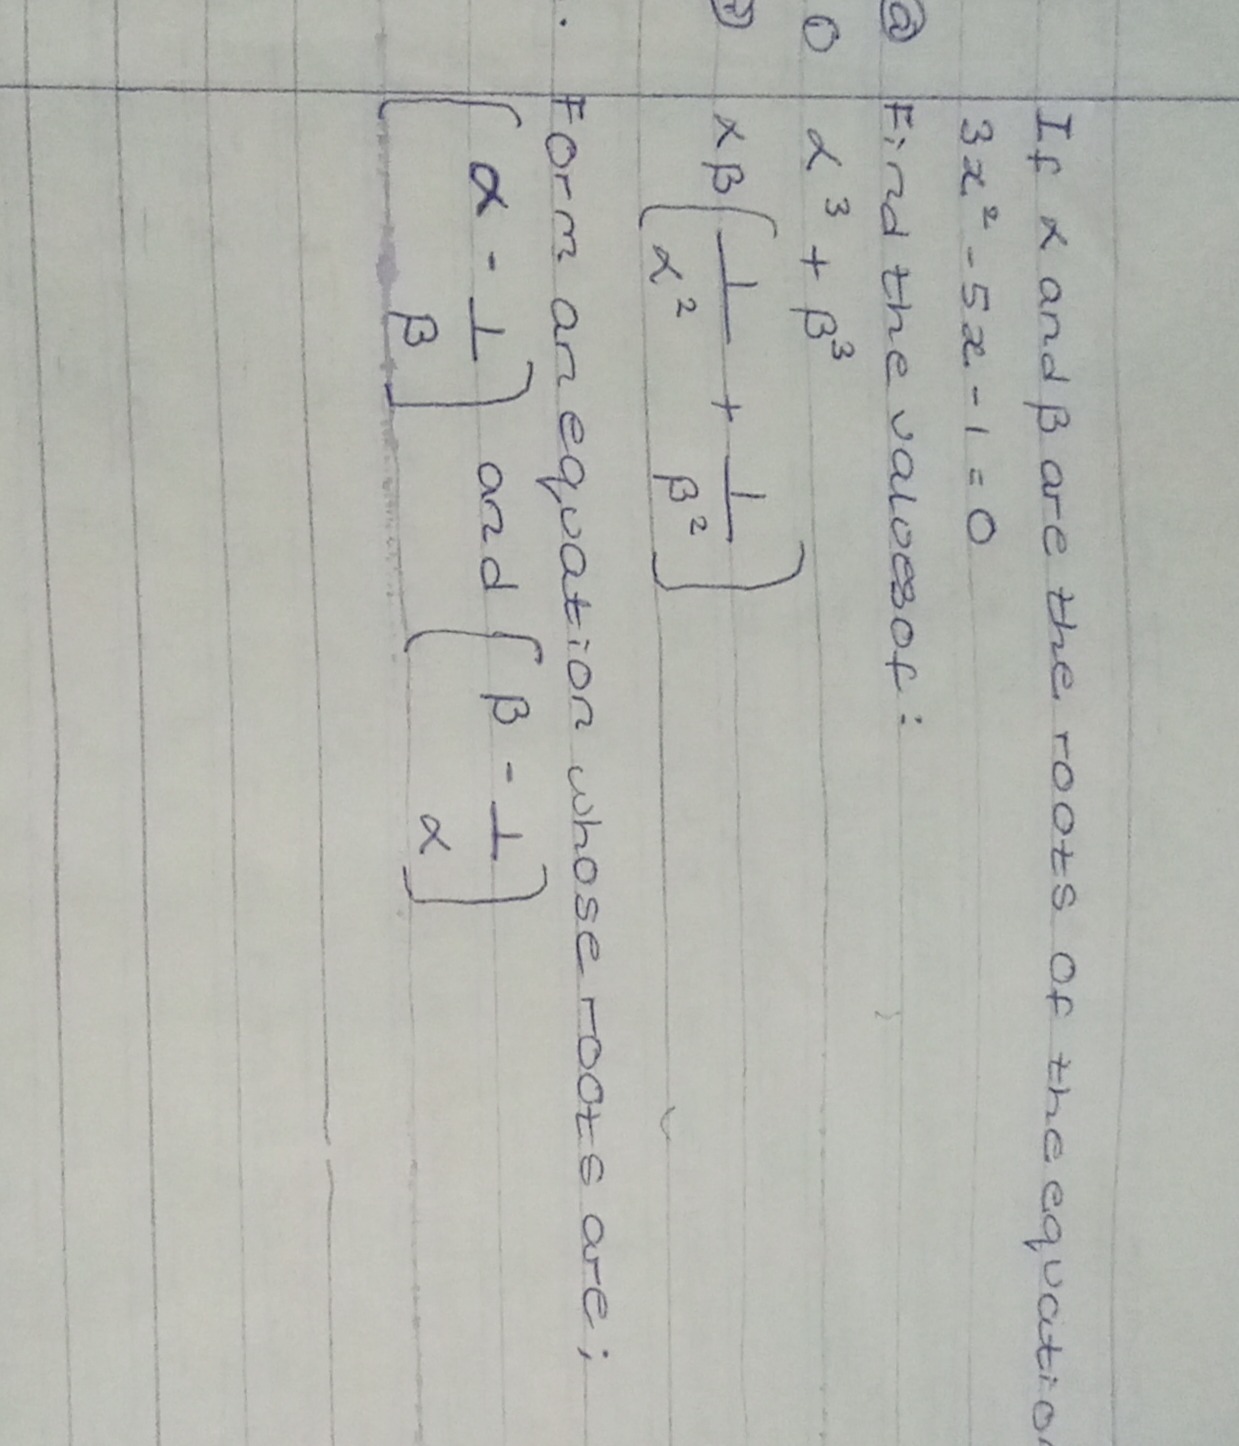 If α and β are the roots of the equation
3x² - 5x - 1 = 0
ⓐ Find the values of:
α³ + β³
αβ(1/α² + 1/β²)
Form an equation whose roots are;
(α - 1/β) and (β - 1/α)